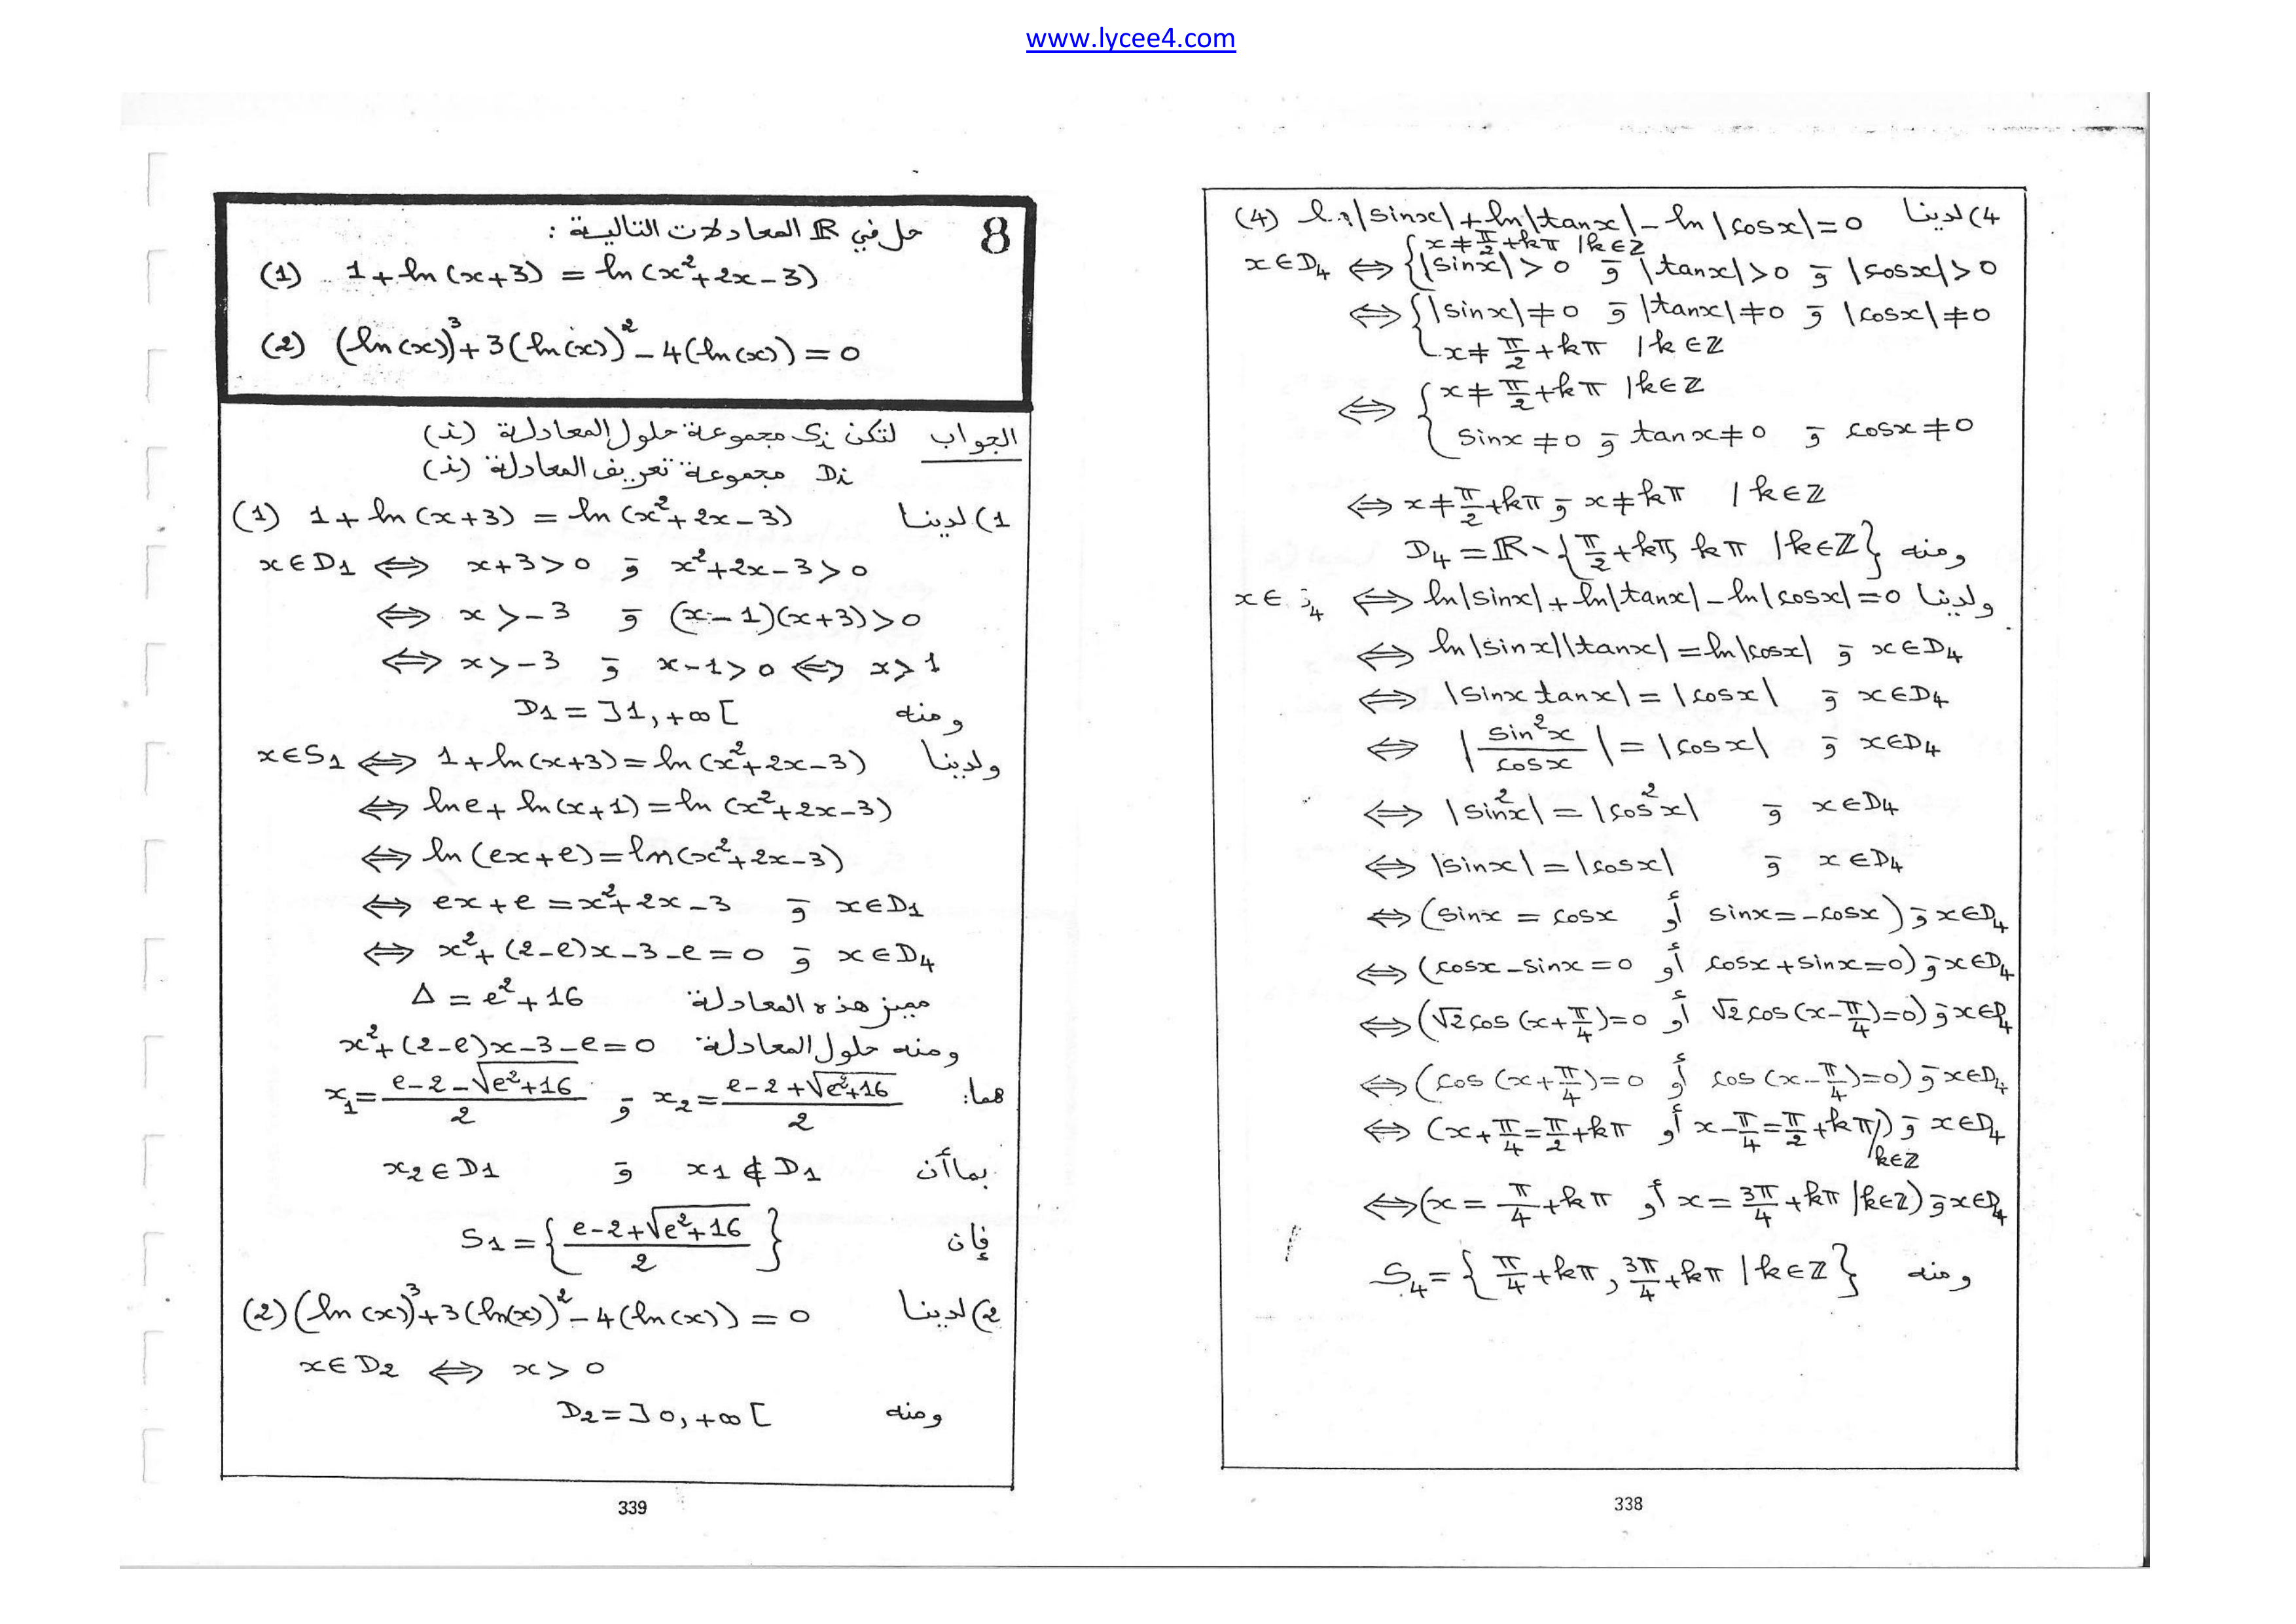 www.lycee4.com
4) لدينا (4) ln|sinx|+ln|tanx|-ln|cosx|=0
x∈D₄ ⇔ { x≠π/2+kπ /k∈ℤ
|sinx|>0 و |tanx|>0 و |cosx|>0
⇔ { |sinx|≠0 و |tanx|≠0 و |cosx|≠0
x≠π/2+kπ /k∈ℤ
⇔ { x≠π/2+kπ /k∈ℤ
sinx≠0 و tanx≠0 و cosx≠0
⇔ x≠π/2+kπ و x≠kπ /k∈ℤ
ومنه D₄=ℝ∖{π/2+kπ, kπ /k∈ℤ}
ولدينا x∈S₄ ⇔ ln|sinx|+ln|tanx|-ln|cosx|=0
⇔ ln|sinx||tanx|=ln|cosx| و x∈D₄
⇔ |sinx tanx|=|cosx| و x∈D₄
⇔ |sin²x/cosx|=|cosx| و x∈D₄
⇔ |sin²x|=|cos²x| و x∈D₄
⇔ |sinx|=|cosx| و x∈D₄
⇔ (sinx=cosx أو sinx=-cosx) و x∈D₄
⇔ (cosx-sinx=0 أو cosx+sinx=0) و x∈D₄
⇔ (√2cos(x+π/4)=0 أو √2cos(x-π/4)=0) و x∈D₄
⇔ (cos(x+π/4)=0 أو cos(x-π/4)=0) و x∈D₄
⇔ (x+π/4=π/2+kπ أو x-π/4=π/2+kπ/k∈ℤ) و x∈D₄
⇔ (x=π/4+kπ أو x=3π/4+kπ /k∈ℤ) و x∈D₄
ومنه S₄={π/4+kπ, 3π/4+kπ /k∈ℤ}
338
8 حل في ℝ المعادلات التالية :
(1) 1+ln(x+3)=ln(x²+2x-3)
(2) (ln(x))³+3(ln(x))²-4(ln(x))=0
الجواب لتكن Sᵢ مجموعة حلول المعادلة (i)
Dᵢ مجموعة تعريف المعادلة (i)
1) لدينا (1) 1+ln(x+3)=ln(x²+2x-3)
x∈D₁ ⇔ x+3>0 و x²+2x-3>0
⇔ x>-3 و (x-1)(x+3)>0
⇔ x>-3 و x-1>0 ⇔ x>1
ومنه D₁=]1,+∞[
ولدينا x∈S₁ ⇔ 1+ln(x+3)=ln(x²+2x-3)
⇔ lne+ln(x+1)=ln(x²+2x-3)
⇔ ln(ex+e)=ln(x²+2x-3)
⇔ ex+e=x²+2x-3 و x∈D₁
⇔ x²+(2-e)x-3-e=0 و x∈D₄
مميز هذه المعادلة Δ=e²+16
ومنه حلول المعادلة x²+(2-e)x-3-e=0
هما: x₁=(e-2-√(e²+16))/2 و x₂=(e-2+√(e²+16))/2
بما أن x₁∉D₁ و x₂∈D₁
فإن S₁={(e-2+√(e²+16))/2}
2) لدينا (2) (ln(x))³+3(ln(x))²-4(ln(x))=0
x∈D₂ ⇔ x>0
ومنه D₂=]0,+∞[
339